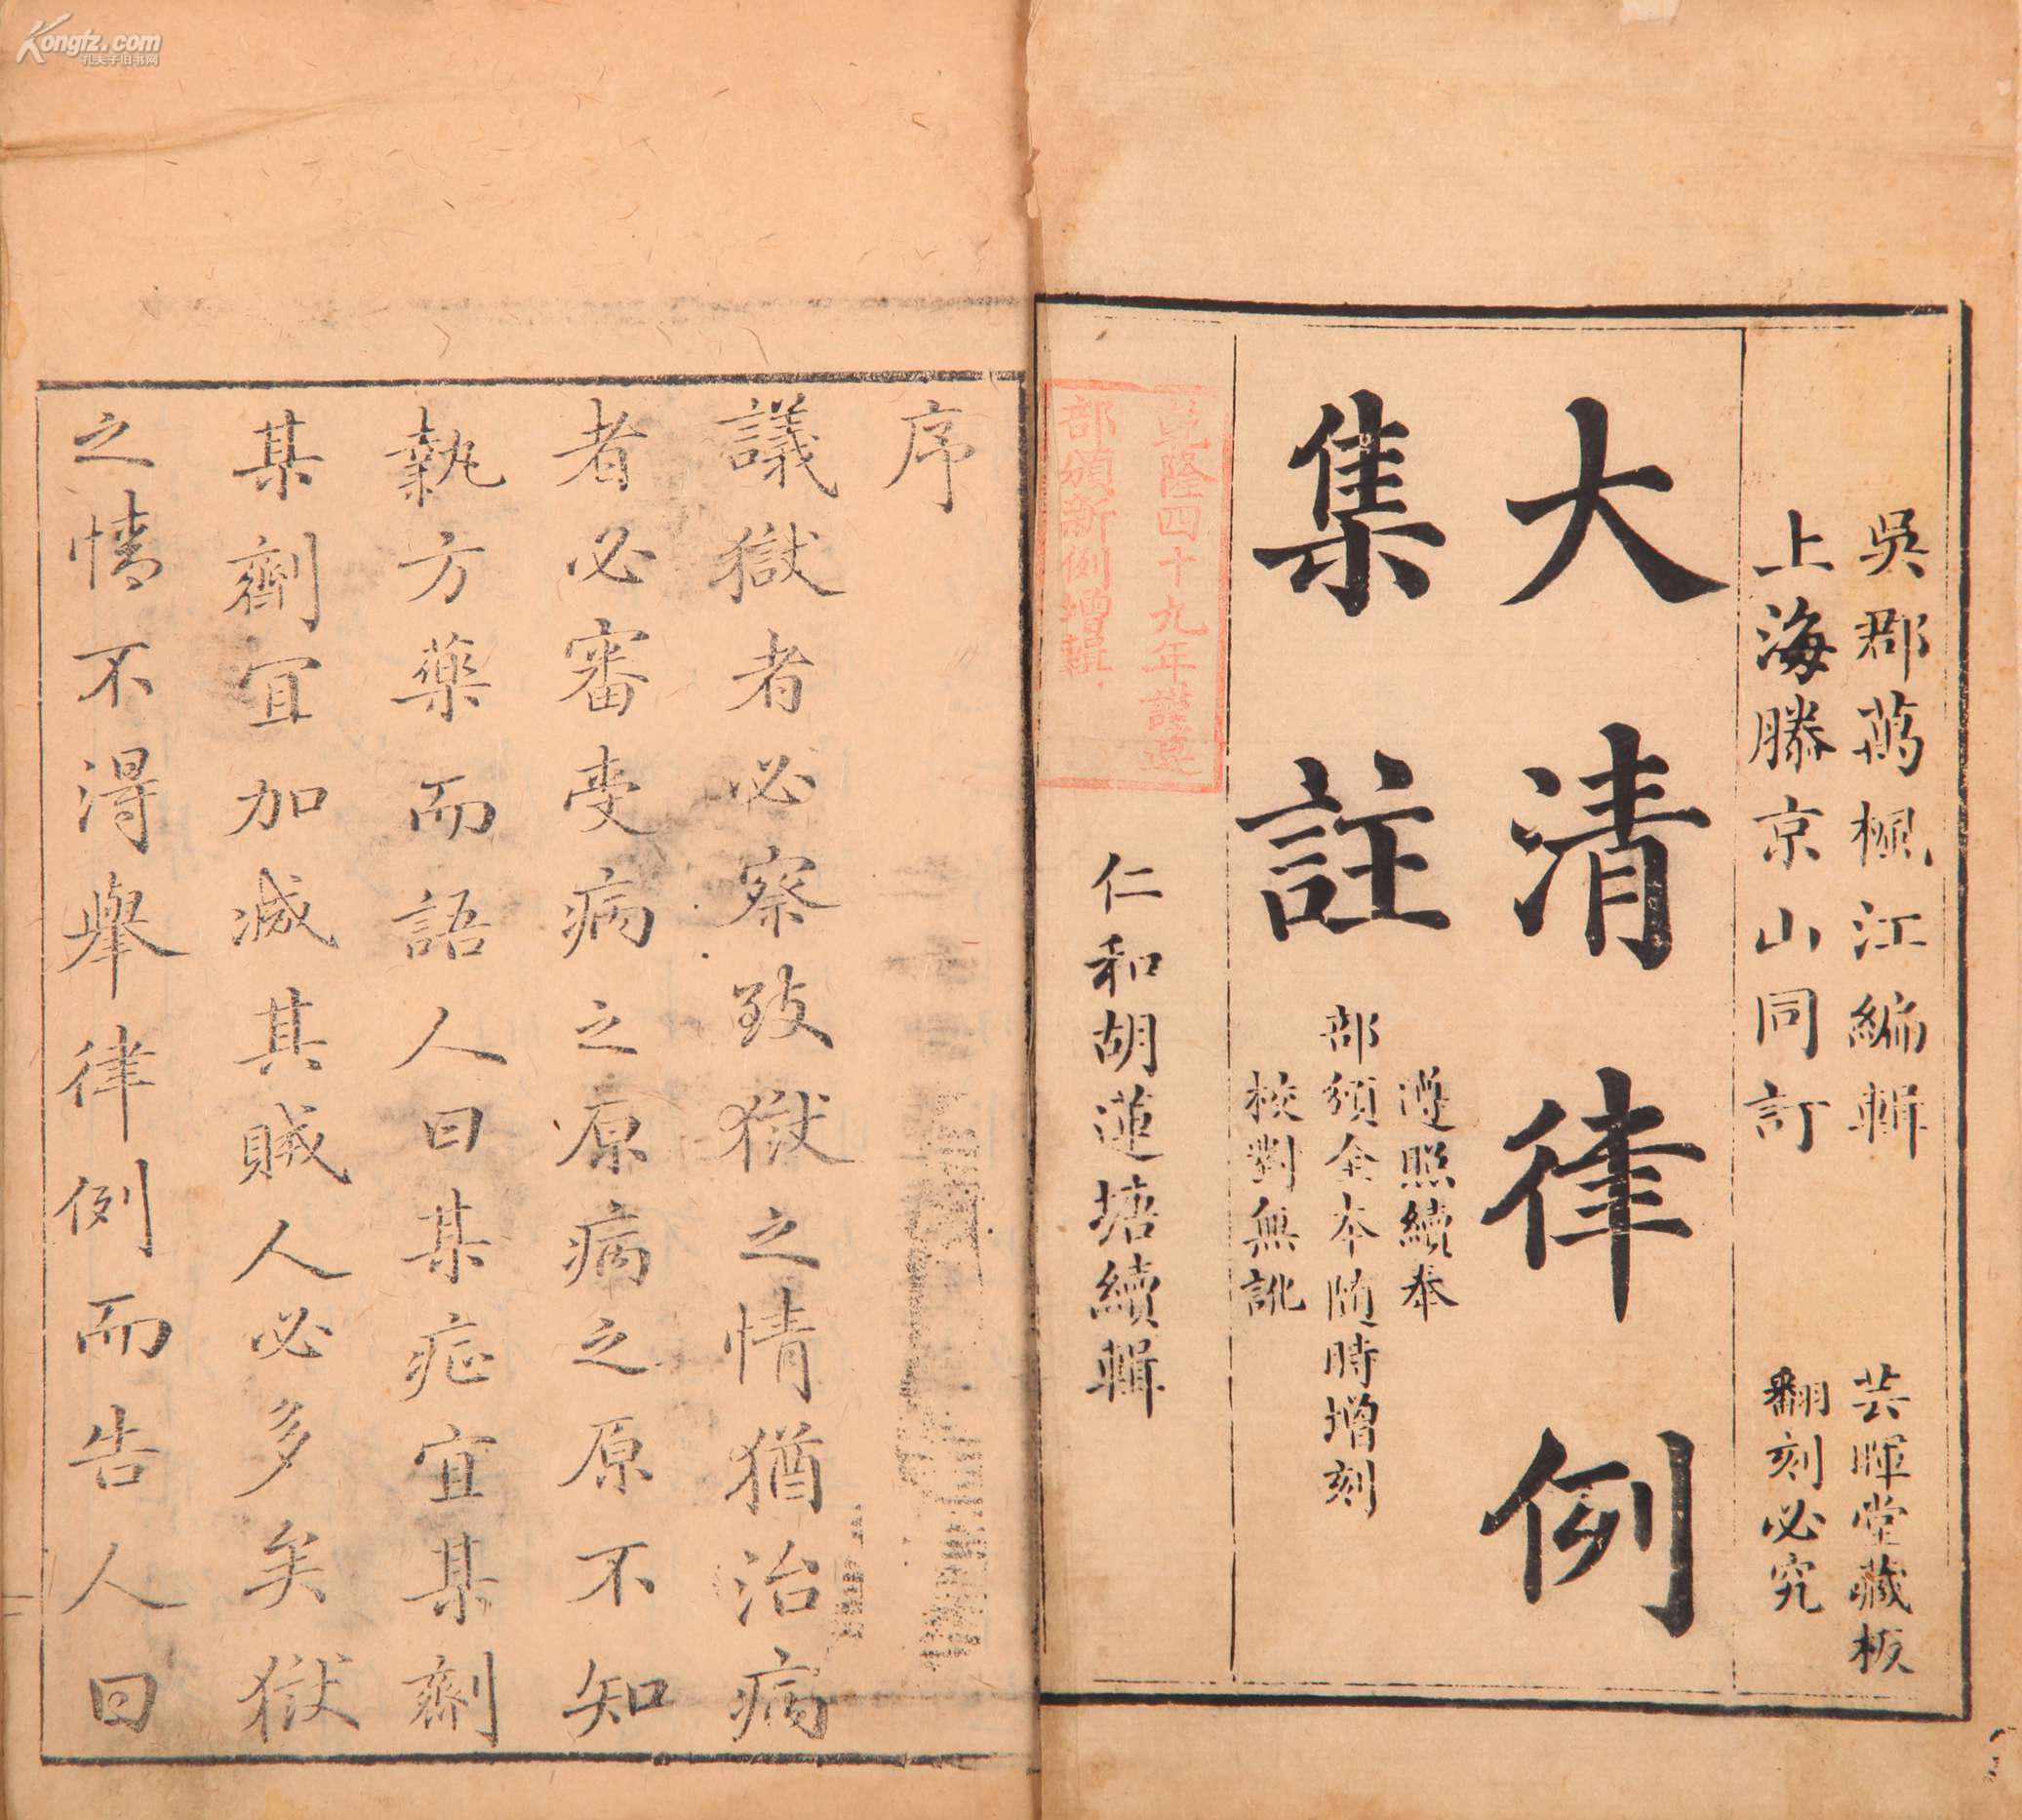 吳郡萬楓江編輯
上海滕京山同訂
芸暉堂藏板
翻刻必究
大清律例
集註
遵照續奉
部頒全本随時增刻
校對無訛
乾隆四十九年謹遵
部頒新例增輯
仁和胡蓮塘續輯
序
議獄者必察致獄之情猶治病
者必審受病之原病之原不知
執方藥而語人曰某症宜某劑
某劑宜加減其賊人必多矣獄
之情不得舉律例而告人曰
Kongfz.com
孔夫子旧书网